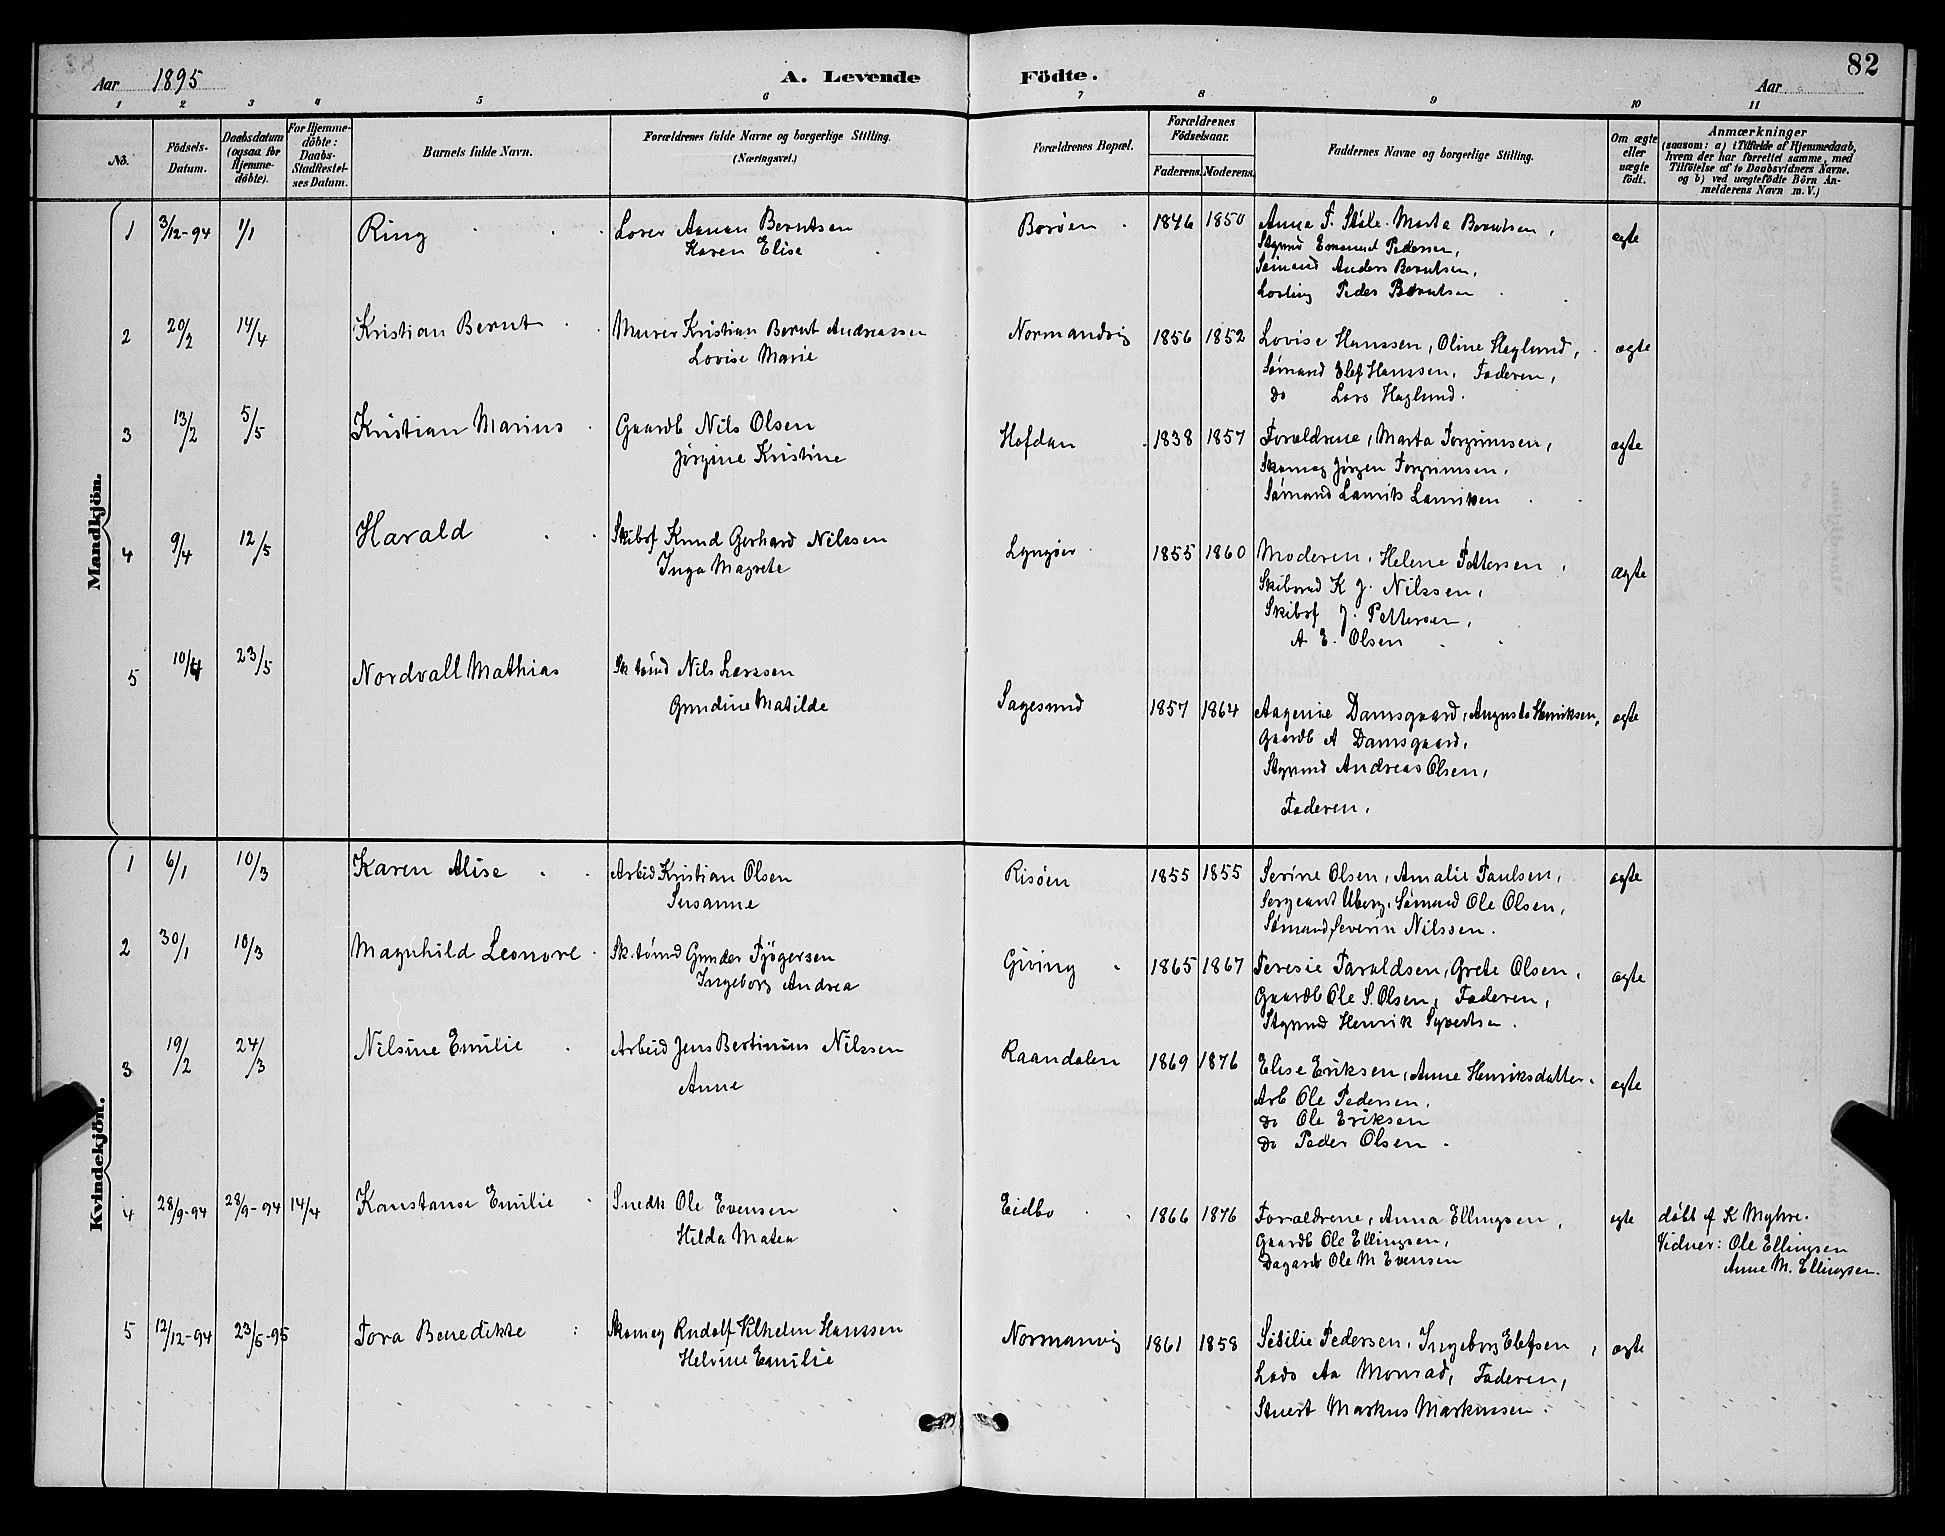 82
Aar 1895 A. Levende Födte. Aar
1 2 3 4 5 6 7 8 9 10 11
No.
Födsels-
Datum.
Daabsdatum
(ogsaa for
Hjemme-
döbte).
For Hjemme-
döbte:
Daabs-
Stadfestel-
ses Datum.
Barnets fulde Navn.
Forældrenes fulde Navne og borgerlige Stilling.
(Næringsvei.)
Forældrenes Bopæl.
Forældrenes
Födselsaar.
Faderens. Moderens.
Faddernes Navne og borgerlige Stilling.
Om ægte
eller
uægte
födt.
Anmærkninger
(saasom: a) i Tilfælde af Hjemmedaab,
hvem der har forrettet samme, med
Tilföielse af to Daabsvidners Navne.
og b) ved uægtefödte Börn An-
melderens Navn m. V.)
Mandkjön.
1 3/12-94 1/1 Ring Annan Berntsen Borøen 1846 1850 Anna Marta Berntsen, ægte
Karen Elise
Emanuel Pedersen,
Sømand Anders Berntsen,
Peder Berntsen
2 20/2 14/4 Kristian Bernt Murer Kristian Bernt Andreassen Normandvig 1856 1852 Lovise Hanssen, Oline Haglund, ægte
Lovise Marie
Sømand Elef Hanssen, Faderen,
do Lars Haglund.
3 13/2 5/5 Kristian Marius Gaardb Nils Olsen Hofdan 1838 1857 Forældrene, Marta Torgrimsen, ægte
Jørgine Kristine
Skomag Jørgen Torgrimsen,
Sømand Laurits
4 9/4 12/5 Harald Skibsf Knud Gerhard Nilssen Lyngøer 1855 1860 Moderen, Helene Pettersen, ægte
Inga Magrete
K J. Nilssen,
Skibsf J. Pettersen,
A E. Olsen
5 10/4 23/5 Nordvall Mathias Sk tømd Nils Larssen Sagesund 1857 1864 Aagenie Damsgaard, Augusta Henriksen, ægte
Gundine Matilde
Gaardb A Damsgaard,
Andreas Olsen,
Faderen.
Kvindekjön.
1 6/1 10/3 Karen Alise Arbeid Kristian Olsen Risøen 1855 1855 Serine Olsen, Amalie Paulsen, ægte
Susanne
Sergeant Uberg, Sømand Ole Olsen,
Sømand Severin Nilssen.
2 30/1 10/3 Magnhild Leonore Sk.tømd Gunder Tjøgersen Giving 1865 1867 Teresie Taraldsen, Grete Olsen, ægte
Ingeborg Andrea
Gaardb Ole S. Olsen, Faderen,
Henrik Syvertsen.
3 19/2 24/3 Nilsine Emilie Arbeid Jens Bertinius Nilssen Raandalen 1869 1876 Elise Eriksen, Anne Henriksdatter. ægte
Anne
Arb Ole Pedersen,
do Ole Eriksen
do Peder Olsen
4 28/9-94 28/9-94 14/4 Konstanse Emilie Snedk Ole Evensen Eidbo 1866 1876 Forældrene, Anna Ellingsen, ægte døbt af K Myhre.
Hilda Matea
Gaardb Ole Ellingsen,
Ole M Evensen
Vidner: Ole Ellingsen
Anne M. Ellingsen.
5 12/12-94 23/5-95 Tora Benedikte Skomag Rudolf Vilhelm Hanssen Normanvig 1861 1858 Sisilie Pedersen, Ingeborg Elefsen, ægte
Helvine Emilie
Lods Aa Monrad, Faderen,
Stuert Markus Markussen.